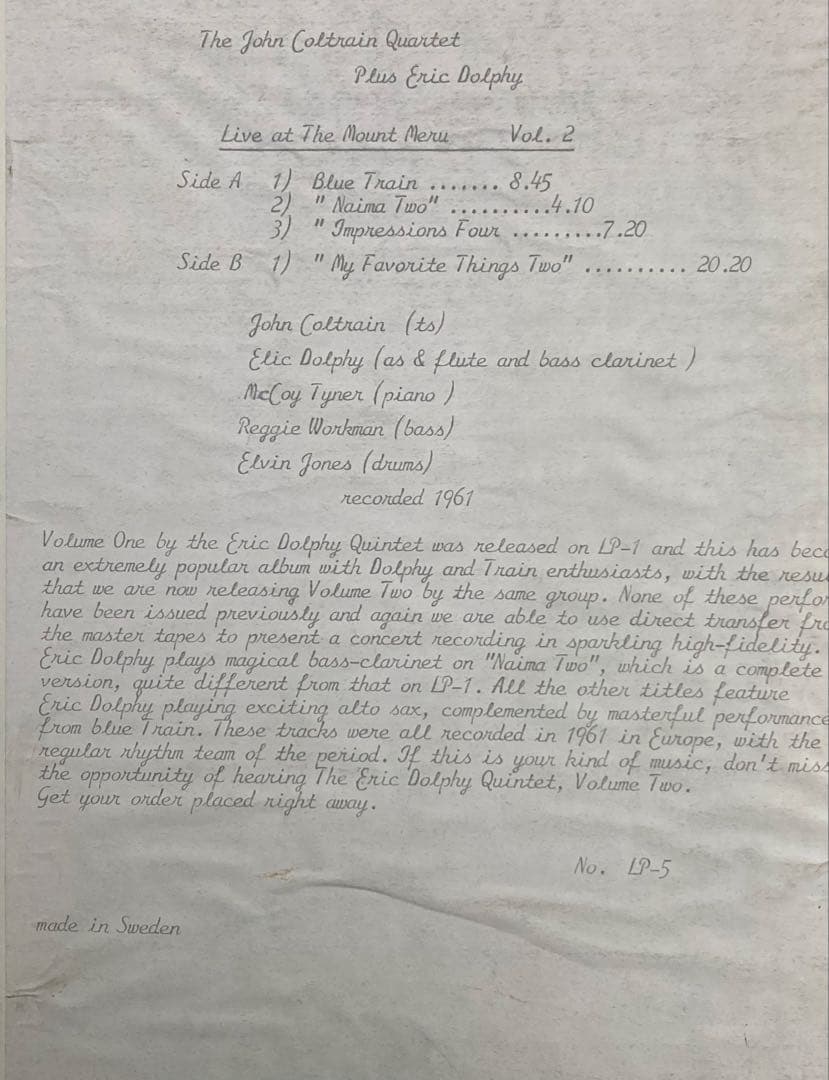 The John Coltrain Quartet
Plus Eric Dolphy
Live at The Mount Meru Vol. 2
Side A 1) Blue Train ....... 8.45
2) " Naima Two" ..........4.10
3) " Impressions Four .........7.20
Side B 1) " My Favorite Things Two" .......... 20.20
John Coltrain (ts)
Elic Dolphy (as & flute and bass clarinet )
McCoy Tyner (piano )
Reggie Workman (bass)
Elvin Jones (drums)
recorded 1961
Volume One by the Eric Dolphy Quintet was released on LP-1 and this has beco
an extremely popular album with Dolphy and Train enthusiasts, with the resul
that we are now releasing Volume Two by the same group. None of these perfor
have been issued previously and again we are able to use direct transfer fro
the master tapes to present a concert recording in sparkling high-fidelity.
Eric Dolphy plays magical bass-clarinet on "Naima Two", which is a complete
version, quite different from that on LP-1. All the other titles feature
Eric Dolphy playing exciting alto sax, complemented by masterful performance
from blue Train. These tracks were all recorded in 1961 in Europe, with the
regular rhythm team of the period. If this is your kind of music, don't miss
the opportunity of hearing The Eric Dolphy Quintet, Volume Two.
Get your order placed right away.
No. LP-5
made in Sweden